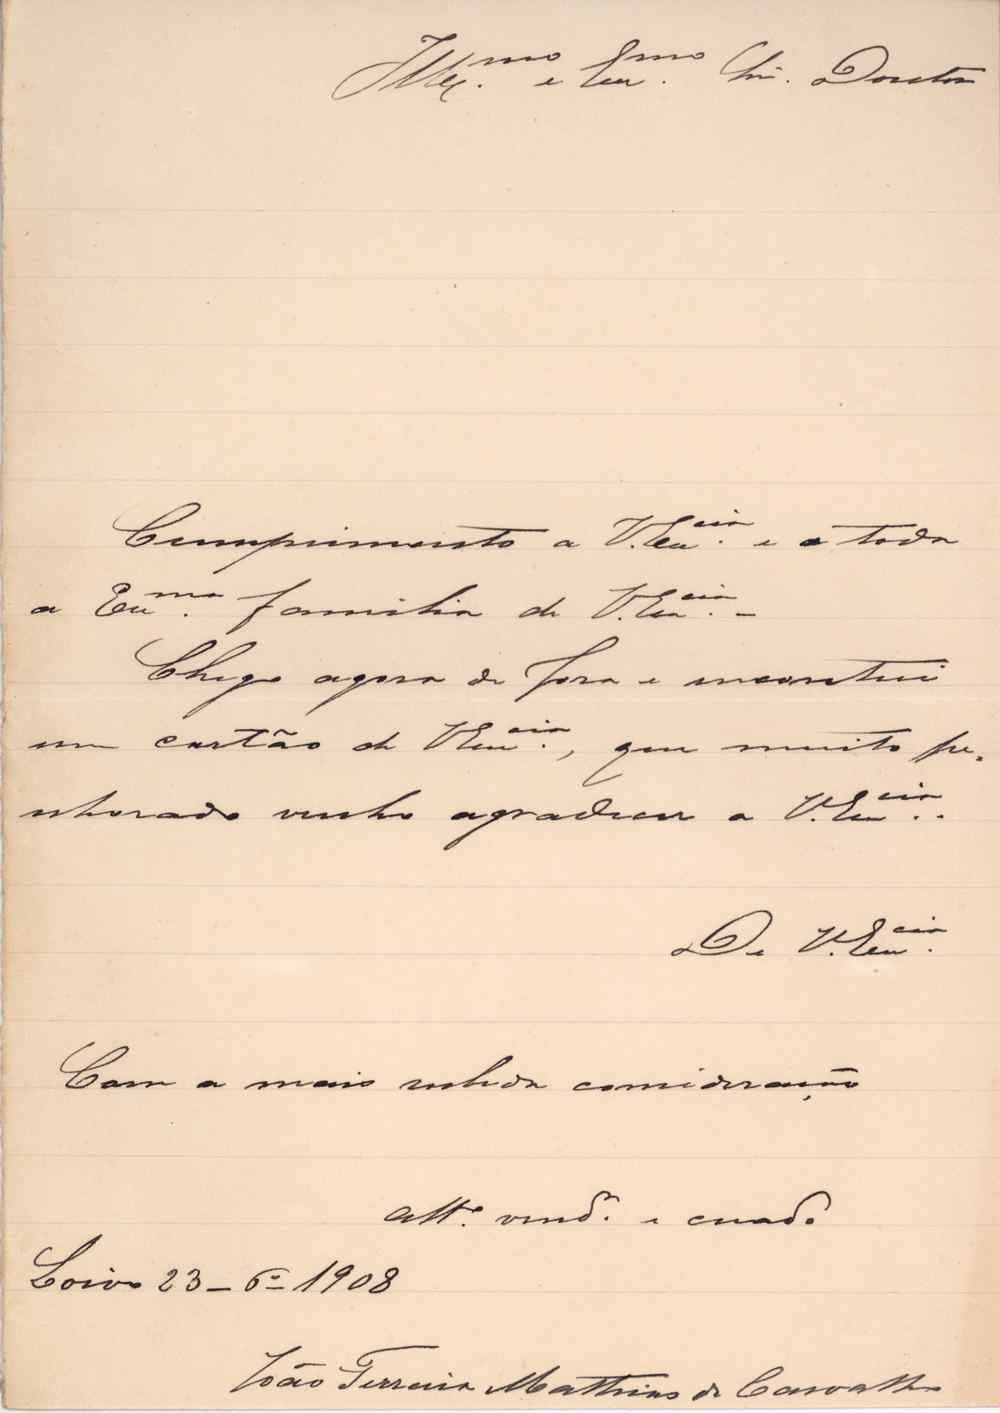 Illᵐᵒ. e Exᵐᵒ. Snr. Doutor
Cumprimento a V. Exᶜⁱᵃ. e a toda
a Exᵐᵃ. familia de V. Exᶜⁱᵃ. –
Chego agora de fora e encontrei
um cartão de V Exᶜⁱᵃ., que muito pe-
nhorado venho agradecer a V. Exᶜⁱᵃ..
De V. Exᶜⁱᵃ.
Com a mais subida consideração
Attº. venᵈºʳ. e criadº
Loivo 23 – 6º – 1908
João Ferreira Mathias de Carvalho